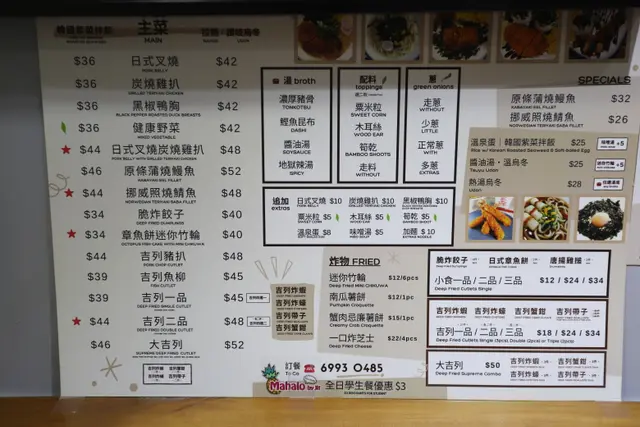 主菜
MAIN
$36 日式叉燒 $42
PORK BELLY
$36 炭燒雞扒 $42
GRILLED TERIYAKI CHICKEN
$36 黑椒鴨胸 $42
BLACK PEPPER ROASTED DUCK BREASTS
$36 健康野菜 $42
MIXED VEGETABLE
$44 日式叉燒炭燒雞扒 $48
PORK BELLY WITH GRILLED TERIYAKI CHICKEN
$46 原條蒲燒鰻魚 $52
KABAYAKI EEL FILLET
$44 挪威照燒鯖魚 $48
NORWEGIAN TERIYAKI SABA FILLET
$34 脆炸餃子 $40
DEEP FRIED DUMPLINGS
$34 章魚餅迷你竹輪 $40
OCTOPUS FISH CAKE WITH MINI CHIKUWA
$44 吉列豬扒 $48
PORK CHOP CUTLET
$39 吉列魚柳 $45
FISH CUTLET
$39 吉列一品 $45
DEEP FRIED SINGLE CUTLET
$44 吉列二品 $48
DEEP FRIED DOUBLE CUTLET
$46 大吉列 $52
SUPREME DEEP FRIED CUTLET
吉列炸蝦
吉列炸蠔
吉列帶子
吉列蟹鉗
湯 broth
濃厚豬骨
TONKOTSU
鰹魚昆布
DASHI
醬油湯
SOYSAUCE
地獄辣湯
SPICY
配料
toppings
粟米粒
SWEET CORN
木耳絲
WOOD EAR
筍乾
BAMBOO SHOOTS
走料
WITHOUT
蔥
green onions
走蔥
WITHOUT
少蔥
LITTLE
正常蔥
WITH
多蔥
EXTRAS
追加
extras
日式叉燒 $10 炭燒雞扒 $10 黑椒鴨胸 $10
粟米粒 $5 木耳絲 $5 筍乾 $5
SWEET CORN WOOD EAR BAMBOO SHOOTS
溫泉蛋 $8 味噌湯 $5 加麵 $10
MISO SOUP EXTRA NOODLE
炸物 FRIED
迷你竹輪 $12/6pcs
Deep Fried MINI CHIKUWA
南瓜薯餅 $12/1pc
Pumpkin Croquette
蟹肉忌廉薯餅 $15/1pc
Creamy Crab Croquette
一口炸芝士 $22/4pcs
Deep Fried Cheese
訂餐
To Go
6993 0485
Mahalo by JR
全日學生餐優惠 $3
SPECIALS
原條蒲燒鰻魚 $32
KABAYAKI EEL FILLET
挪威照燒鯖魚 $26
NORWEGIAN TERIYAKI SABA FILLET
溫泉蛋｜韓國紫菜拌飯 $25
Rice w/ Korean Roasted Seaweed & Soft boiled Egg
醬油湯・溫烏冬 $25
Tsuyu Udon
熱湯烏冬 $28
Udon
脆炸餃子 日式章魚餅 唐揚雞腿
小食一品 / 二品 / 三品 $12 / $24 / $34
Deep Fried Cutlets Single
吉列炸蝦 吉列炸蠔 吉列帶子 吉列蟹鉗
吉列一品 / 二品 / 三品 $18 / $24 / $34
Deep Fried Cutlets Single (1pcs), Double (2pcs) or Triple (3pcs)
大吉列 $50
Deep Fried Supreme Combo
吉列炸蝦 吉列蟹鉗
吉列炸蠔 吉列帶子